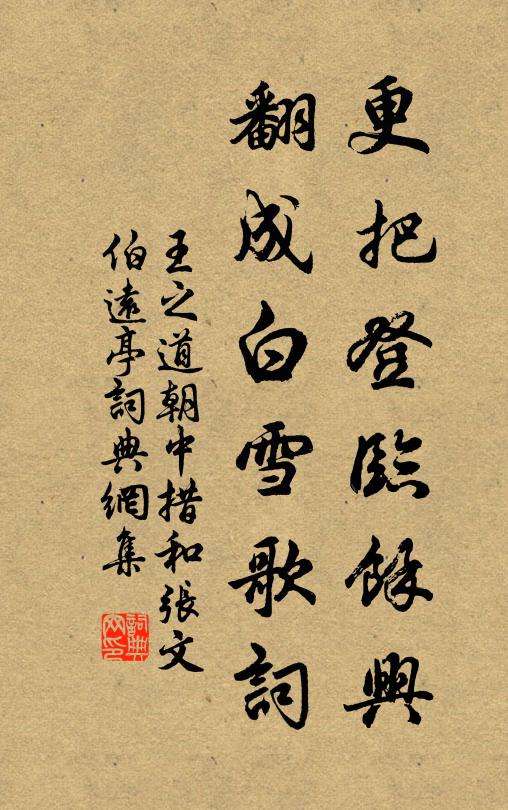 更把登臨餘興
翻成白雪歌詞
王之道朝中措和張文
伯遠亭詞典網集
詞典
网印